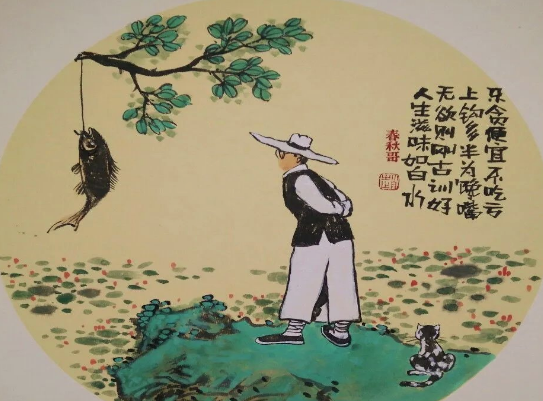 不贪便宜不吃亏
上钩多半为馋嘴
无欲则刚古训好
人生滋味如白水
春秋哥